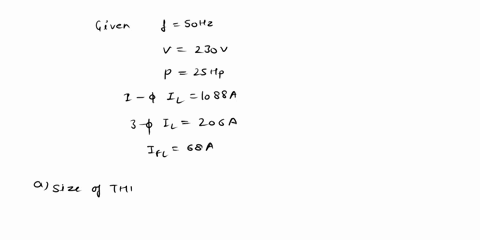 Given f = 50Hz
V = 230V
P = 25Hp
1-φ IL = 1088A
3-φ IL = 206A
IfL = 68A
a) Size of THI